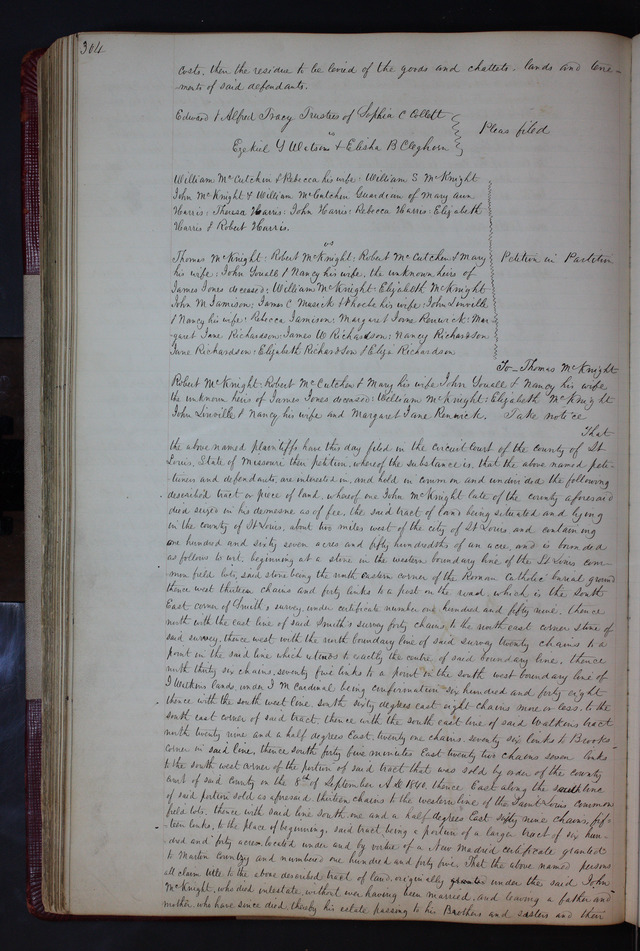 304
costs, then the residue to be levied of the goods and chattels, lands and tene-
ments of said defendants.
Edward & Alfred Tracy Trustees of Sophia C Collett
vs
Ezekiel Y Watson & Elisha B Cleghorn
Pleas filed
William McCutchen & Rebecca his wife: William S. McKnight
John McKnight & William McCutchen Guardian of Mary Ann
Harris: Theresa Harris: John Harris: Rebecca Harris: Elizabeth
Harris & Robert Harris.
vs
Thomas McKnight: Robert McKnight: Robert McCutchen & Mary
his wife: John Youall & Nancy his wife, the unknown heirs of
James Jones deceased: William McKnight: Elizabeth McKnight
John M Jamison: James C Musick & Phoebe his wife: John Linville
& Nancy his wife: Rebecca Jamison: Margaret Jane Renwick: Mar-
garet Jane Richardson: James W Richardson: Nancy Richardson
Jane Richardson: Elizabeth Richardson & Eliza Richardson
Petition in Partition
To Thomas McKnight
Robert McKnight: Robert McCutchen & Mary his wife John Youall & Nancy his wife
the unknown heirs of James Jones deceased: William McKnight: Elizabeth McKnight
John Linville & Nancy his wife and Margaret Jane Renwick. Take notice
That
the above named plaintiffs have this day filed in the circuit court of the county of St
Louis, State of Missouri their petition, whereof the substance is, that the above named peti-
tioners and defendants, are interested in, and hold in common and undivided the following
described tract or piece of land, whereof one John McKnight late of the county aforesaid
died seized in his demesne as of fee, the said tract of land being situated and lying
in the county of St Louis, about two miles west of the city of St Louis and containing
one hundred and sixty seven acres and fifty hundredths of an acre and is bounded
as follows to wit, beginning at a stone in the western boundary line of the St Louis com-
mon field lots, said stone being the north eastern corner of the Roman Catholic burial ground
thence west thirteen chains and forty links to a post on the road, which is the South
East corner of Smith's survey, under certificate number one hundred and fifty nine, thence
north with the east line of said Smith's survey forty chains, to the north east corner stone of
said survey, thence west with the north boundary line of said survey twenty chains to a
point in the said line which is exactly the centre of said boundary line, thence
north thirty six chains, seventy five links to a point in the south west boundary line of
J Watkins lands, under J M Cardinal being confirmation six hundred and forty eight
thence with the south west line, south sixty degrees east eight chains more or less, to the
south east corner of said tract, thence with the south east line of said Watkins tract
north twenty nine and a half degrees East, twenty one chains, seventy six links to Brooks'
corner in said line, thence south forty five minutes East twenty two chains seven links
to the south west corner of the portion of said tract that was sold by order of the county
court of said county on the 8th of September A D 1840, thence East along the south line
of said portion sold as aforesaid, thirteen chains to the western line of the Saint Louis common
field lots, thence with said line South one and a half degrees East sixty nine chains, fif-
teen links, to the place of beginning, said tract being a portion of a larger tract of six hun-
dred and forty acres located under and by virtue of a New Madrid certificate granted
to Martin Coontry and numbered one hundred and forty five. That the above named persons
all claim title to the above described tract of land, originally granted under the said John
McKnight, who died intestate, without ever having been married, and leaving a father and
mother, who have since died, thereby his estate passing to his Brothers and sisters and their